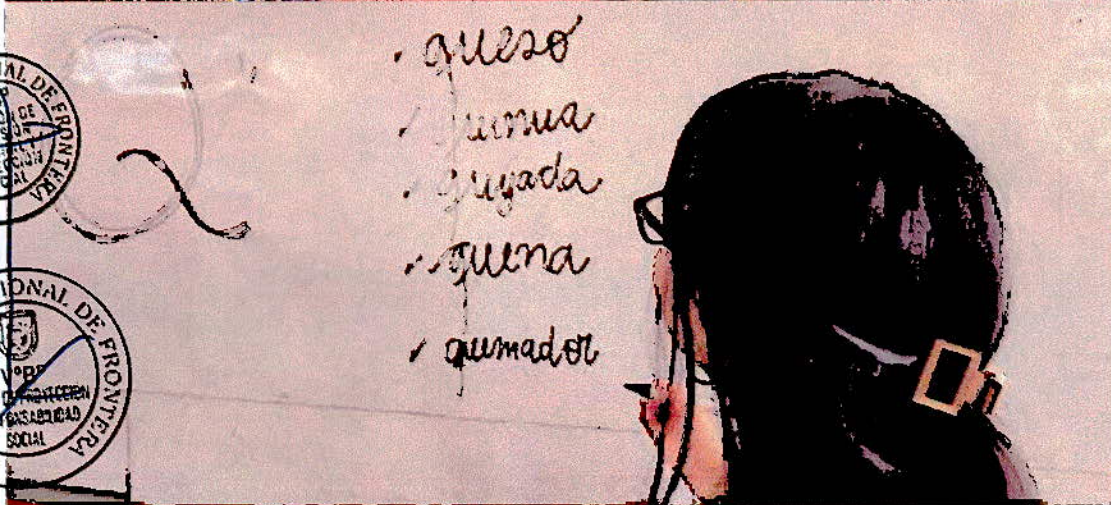 Q
queso
quinua
quijada
quena
quemador
DE FRONTERA
IONAL DE FRONTERA
VºBº
SOCIAL